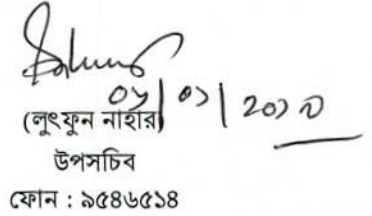 ০১/২০১৯
(লুৎফুন নাহার)
উপসচিব
ফোন : ৯৫৪৬৫১৪